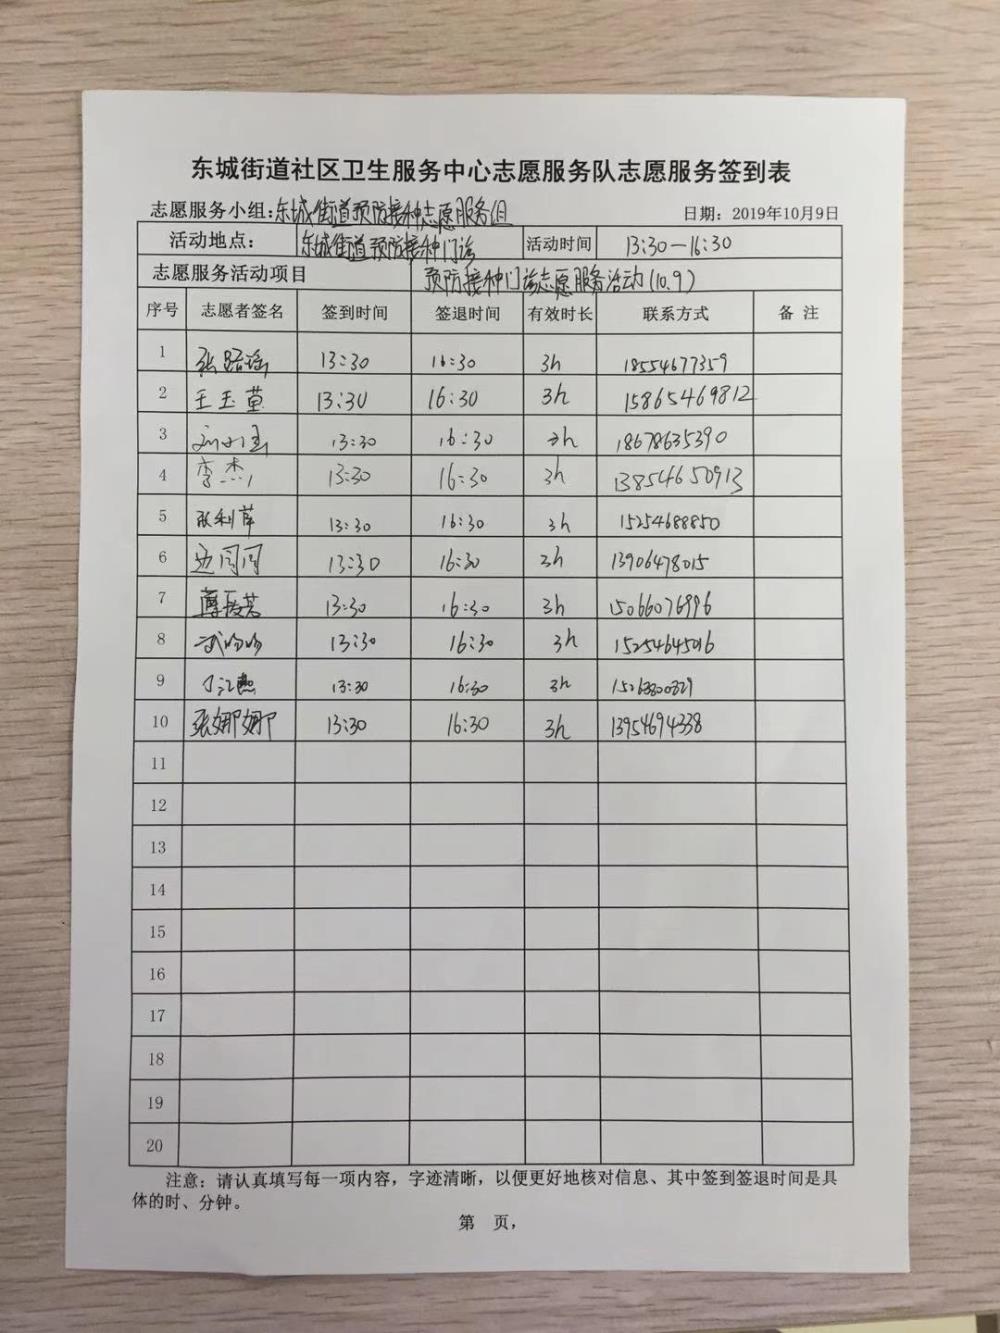 东城街道社区卫生服务中心志愿服务队志愿服务签到表
志愿服务小组:东城街道预防接种志愿服务组 日期：2019年10月9日
活动地点： 东城街道预防接种门诊 活动时间 13:30—16:30
志愿服务活动项目 预防接种门诊志愿服务活动(10.9)
序号 志愿者签名 签到时间 签退时间 有效时长 联系方式 备 注
1 张路瑶 13:30 16:30 3h 18554677359
2 王玉萱 13:30 16:30 3h 15865469812
3 13:30 16:30 3h 18678635390
4 李杰 13:30 16:30 3h 13854650913
5 张利苹 13:30 16:30 3h 15254688850
6 边闫闫 13:30 16:30 3h 13906478015
7 13:30 16:30 3h 15066076996
8 武吻吻 13:30 16:30 3h 15254645016
9 13:30 16:30 3h
10 张娜娜 13:30 16:30 3h 13954694338
11
12
13
14
15
16
17
18
19
20
注意：请认真填写每一项内容，字迹清晰，以便更好地核对信息、其中签到签退时间是具
体的时、分钟。
第 页，